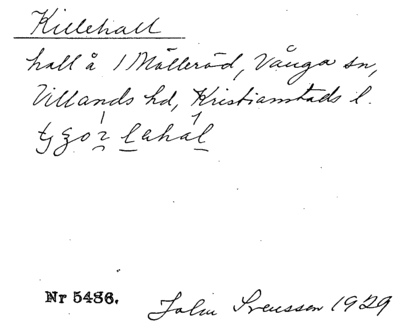 Killehall
hall å 1 Mölleröd, Vånga sn,
Villands hd, Kristianstads l.
Nr 5486.
John Svensson 1929